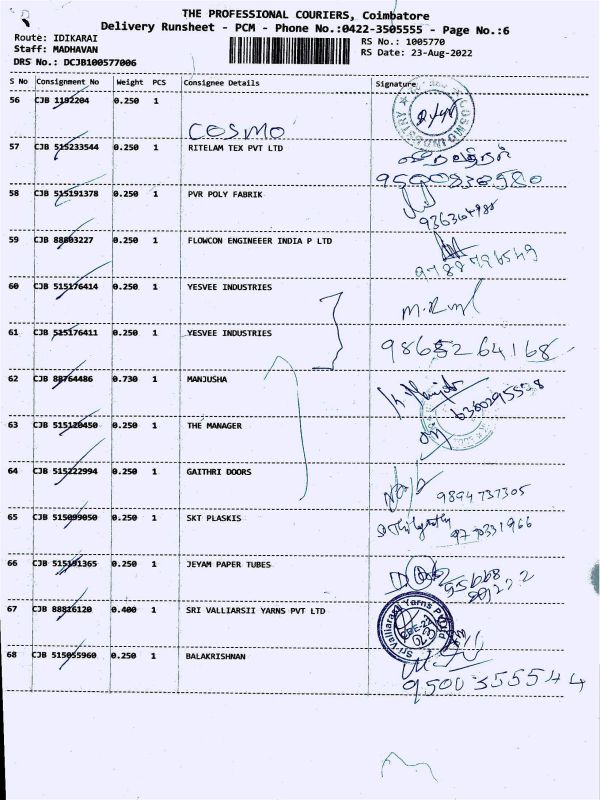 THE PROFESSIONAL COURIERS, Coimbatore
Delivery Runsheet - PCM - Phone No.:0422-3505555 - Page No.:6
Route: IDIKARAI RS No.: 1005770
Staff: MADHAVAN RS Date: 23-Aug-2022
DRS No.: DCJB100577006
S No Consignment No Weight PCS Consignee Details Signature
56 CJB 1192204 0.250 1
COSMO
57 CJB 515233544 0.250 1 RITELAM TEX PVT LTD
9500830580
58 CJB 515191378 0.250 1 PVR POLY FABRIK
59 CJB 88803227 0.250 1 FLOWCON ENGINEEER INDIA P LTD
9788796549
60 CJB 515176414 0.250 1 YESVEE INDUSTRIES
61 CJB 515176411 0.250 1 YESVEE INDUSTRIES
9865264168
62 CJB 88764486 0.730 1 MANJUSHA
6380295528
63 CJB 515120450 0.250 1 THE MANAGER
64 CJB 515222994 0.250 1 GAITHRI DOORS
9894737305
65 CJB 515099050 0.250 1 SKT PLASKIS
66 CJB 515191365 0.250 1 JEYAM PAPER TUBES
67 CJB 88826120 0.400 1 SRI VALLIARSII YARNS PVT LTD
68 CJB 515055960 0.250 1 BALAKRISHNAN
9500355544